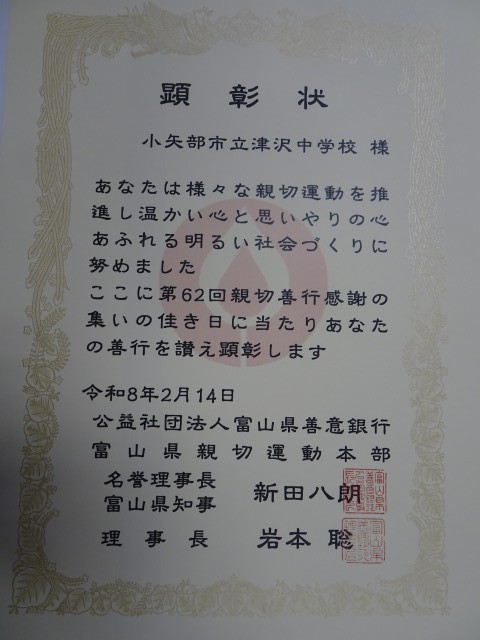 顕彰状
小矢部市立津沢中学校 様
あなたは様々な親切運動を推
進し温かい心と思いやりの心
あふれる明るい社会づくりに
努めました
ここに第62回親切善行感謝の
集いの佳き日に当たりあなた
の善行を讃え顕彰します
令和8年2月14日
公益社団法人富山県善意銀行
富山県親切運動本部
名誉理事長
富山県知事 新田八朗
理事長 岩本聡